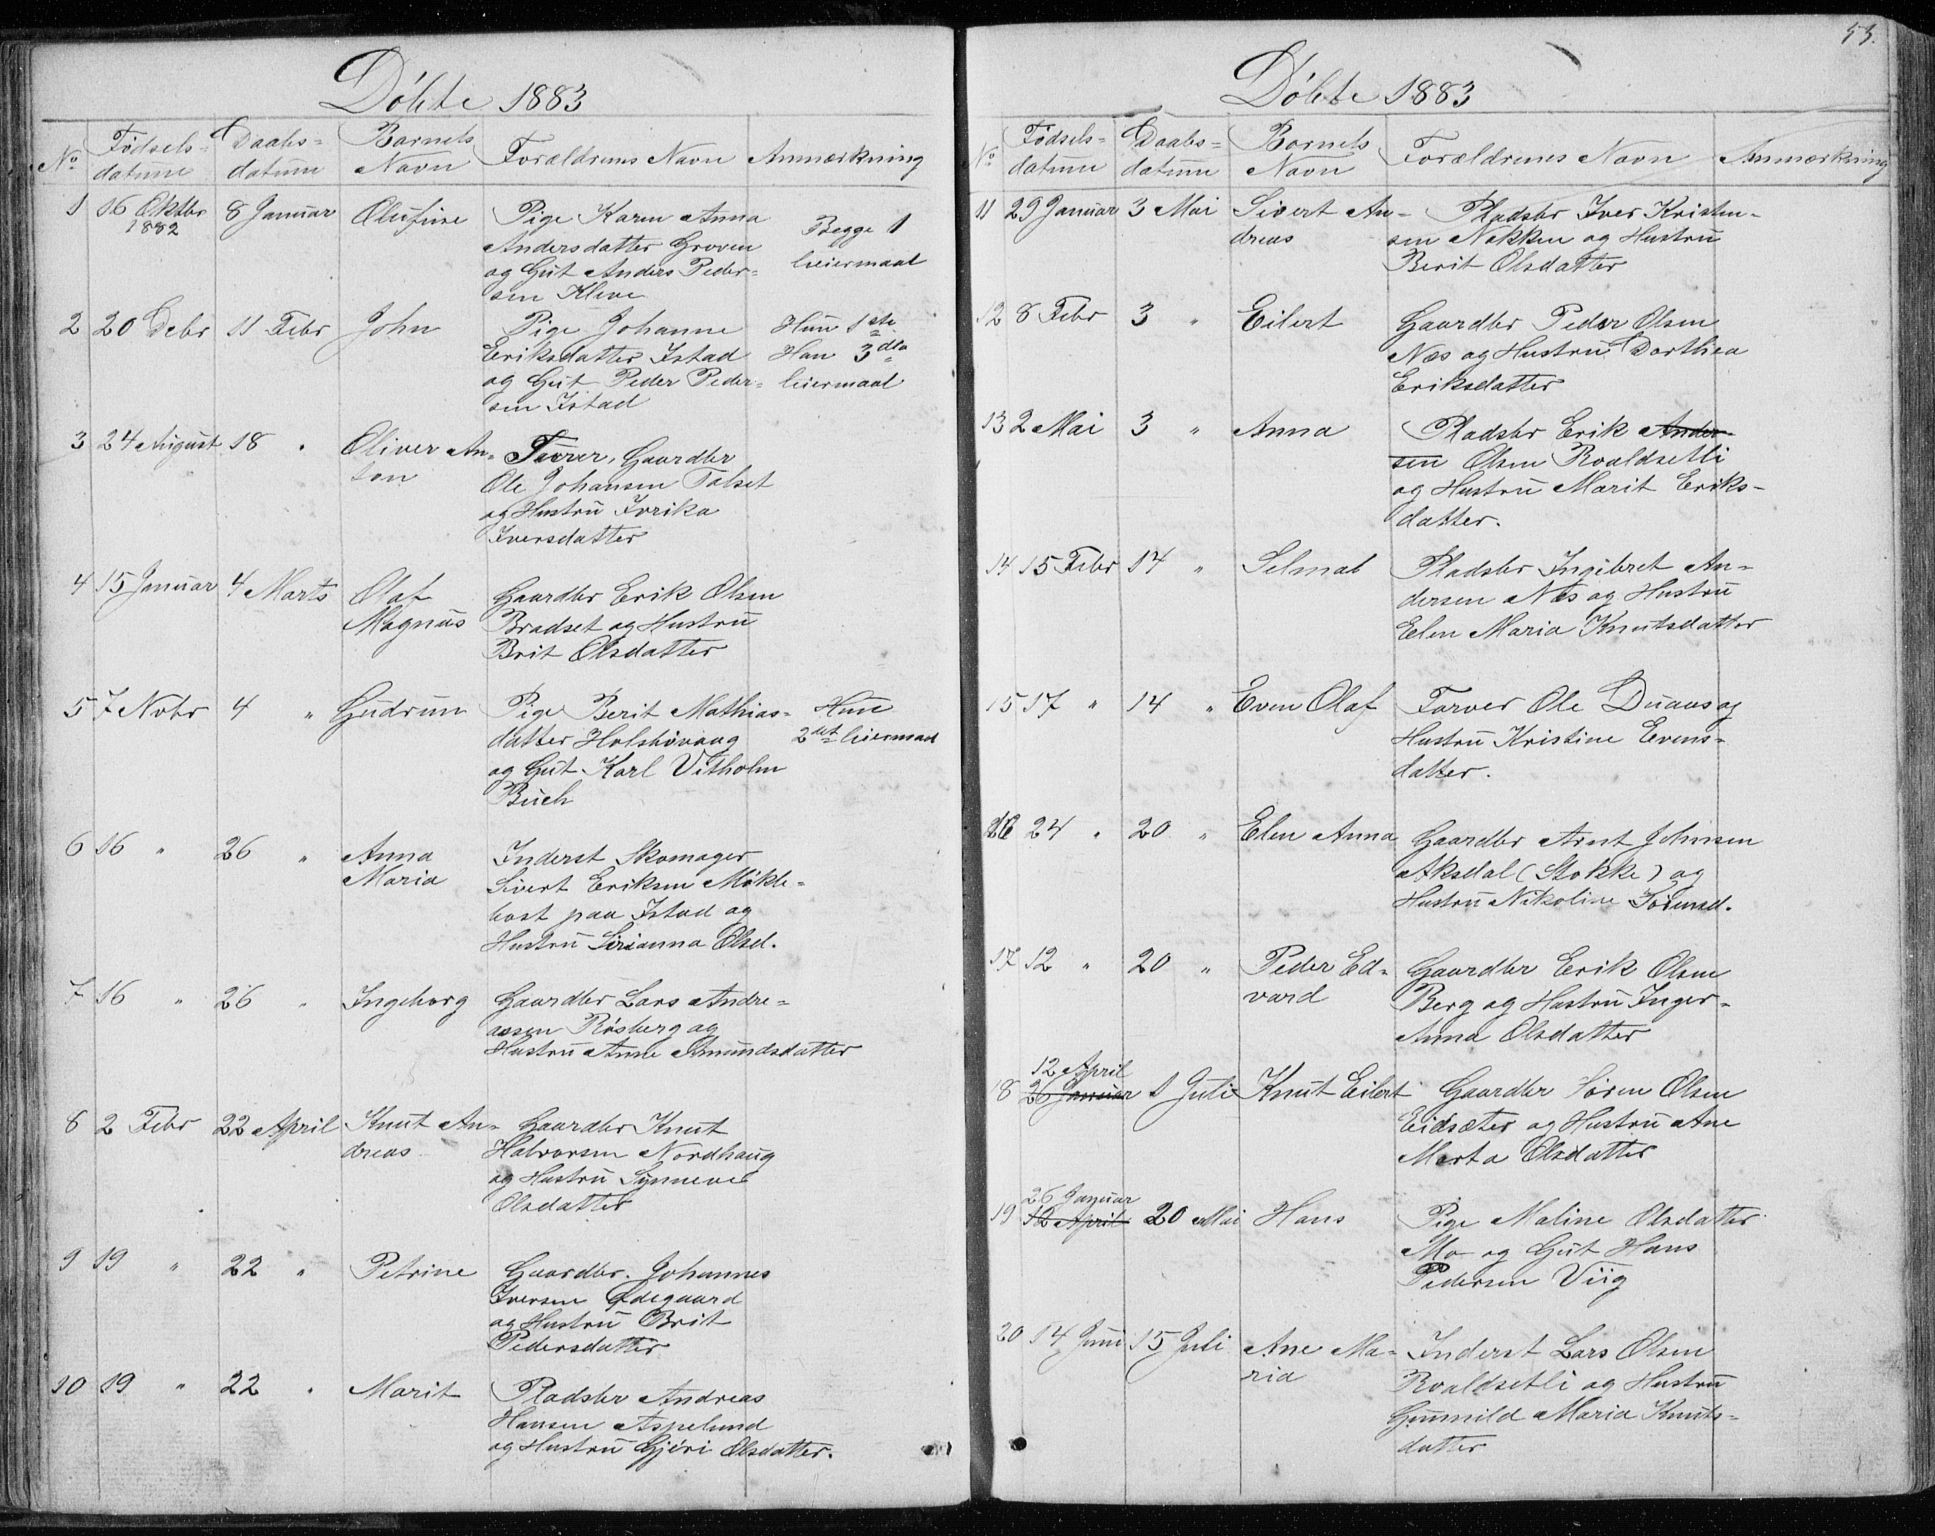 Döbte 1883
No Födsels-datum Daabs-datum Barnets Navn Forældrenes Navn Anmærkning
1 16 Oktbr 8 Januar Olufine Pige Karen Anna Begge 1
1882 Andersdatter Groven leiermaal
og Gut Anders Peder-
sen Kleve
2 20 Debr 11 Febr John Pige Johanne Hun 1ste
Eriksdatter Istad Han 3die
og Gut Peder Peder- leiermaal
sen Istad
3 24 August 18 " Oliver An- Farver, Gaardbr
ton Ole Johansen Talset
og Hustru Ivrika
Iversdatter
4 15 Januar 4 Marts Olaf Gaardbr Erik Olsen
Magnus Bradset og Hustru
Brit Olsdatter
5 7 Nobr 4 " Gudrun Pige Berit Mathias- Hun
datter Holshövaag 2det leiermaal
og Gut Karl Vitholm
Buch
6 16 " 26 " Anna Inderst Skomager
Maria Sivert Eriksen Mökle-
bost paa Istad og
Hustru Sirianna Olsd.
7 16 " 26 " Ingeborg Gaardbr Lars Andre-
assen Rösberg og
Hustru Anne Amundsdatter
8 2 Febr 22 April Knut An- Gaardbr Knut
dreas Halvorsen Nordhaug
og Hustru Synneve
Olsdatter
9 19 " 22 " Petrine Gaardbr. Johannes
Iversen Ødegaard
og Hustru Brit
Pedersdatter
10 19 " 22 " Marit Pladsbr Andreas
Hansen Aspelund
og Hustru Gjöri Olsdatter.
53.
Döbte 1883
No Födsels-datum Daabs-datum Barnets Navn Forældrenes Navn Anmærkning
11 29 Januar 3 Mai Sivert An- Pladsbr Iver Kristen-
dreas sen Nakken og Hustru
Berit Olsdatter
12 8 Febr 3 " Eilert Gaardbr Peder Olsen
Næs og Hustru Dorthea
Eriksdatter
13 2 Mai 3 " Anna Pladsbr Erik Ander-
sen Olsen Roaldsetli
og Hustru Marit Eriks-
datter.
14 15 Febr 14 " Selma Pladsbr Ingebret An-
dersen Næs og Hustru
Elen Maria Knutsdatter
15 17 " 14 " Even Olaf Farver Ole Duaas og
Hustru Kristine Evens-
datter.
16 24 " 20 " Elen Anna Gaardbr Arnt Johnsen
Aksdal (Stokke) og
Hustru Nikoline
17 12 " 20 " Peder Ed- Gaardbr Erik Olsen
vard Berg og Hustru Inger-
Anna Olsdatter
12 April
18 26 Januar 1 Juli Knut Eilert Gaardbr Sören Olsen
Eidsæter og Hustru Ane
Marta Olsdatter
26 Januar
19 12 April 20 Mai Hans Pige Maline Olsdatter
Mo og Gut Hans
Pedersen Viig
20 14 Juni 15 Juli Ane Ma- Inderst Lars Olsen
ria Roaldsetli og Hustru
Gunnild Maria Knuts-
datter